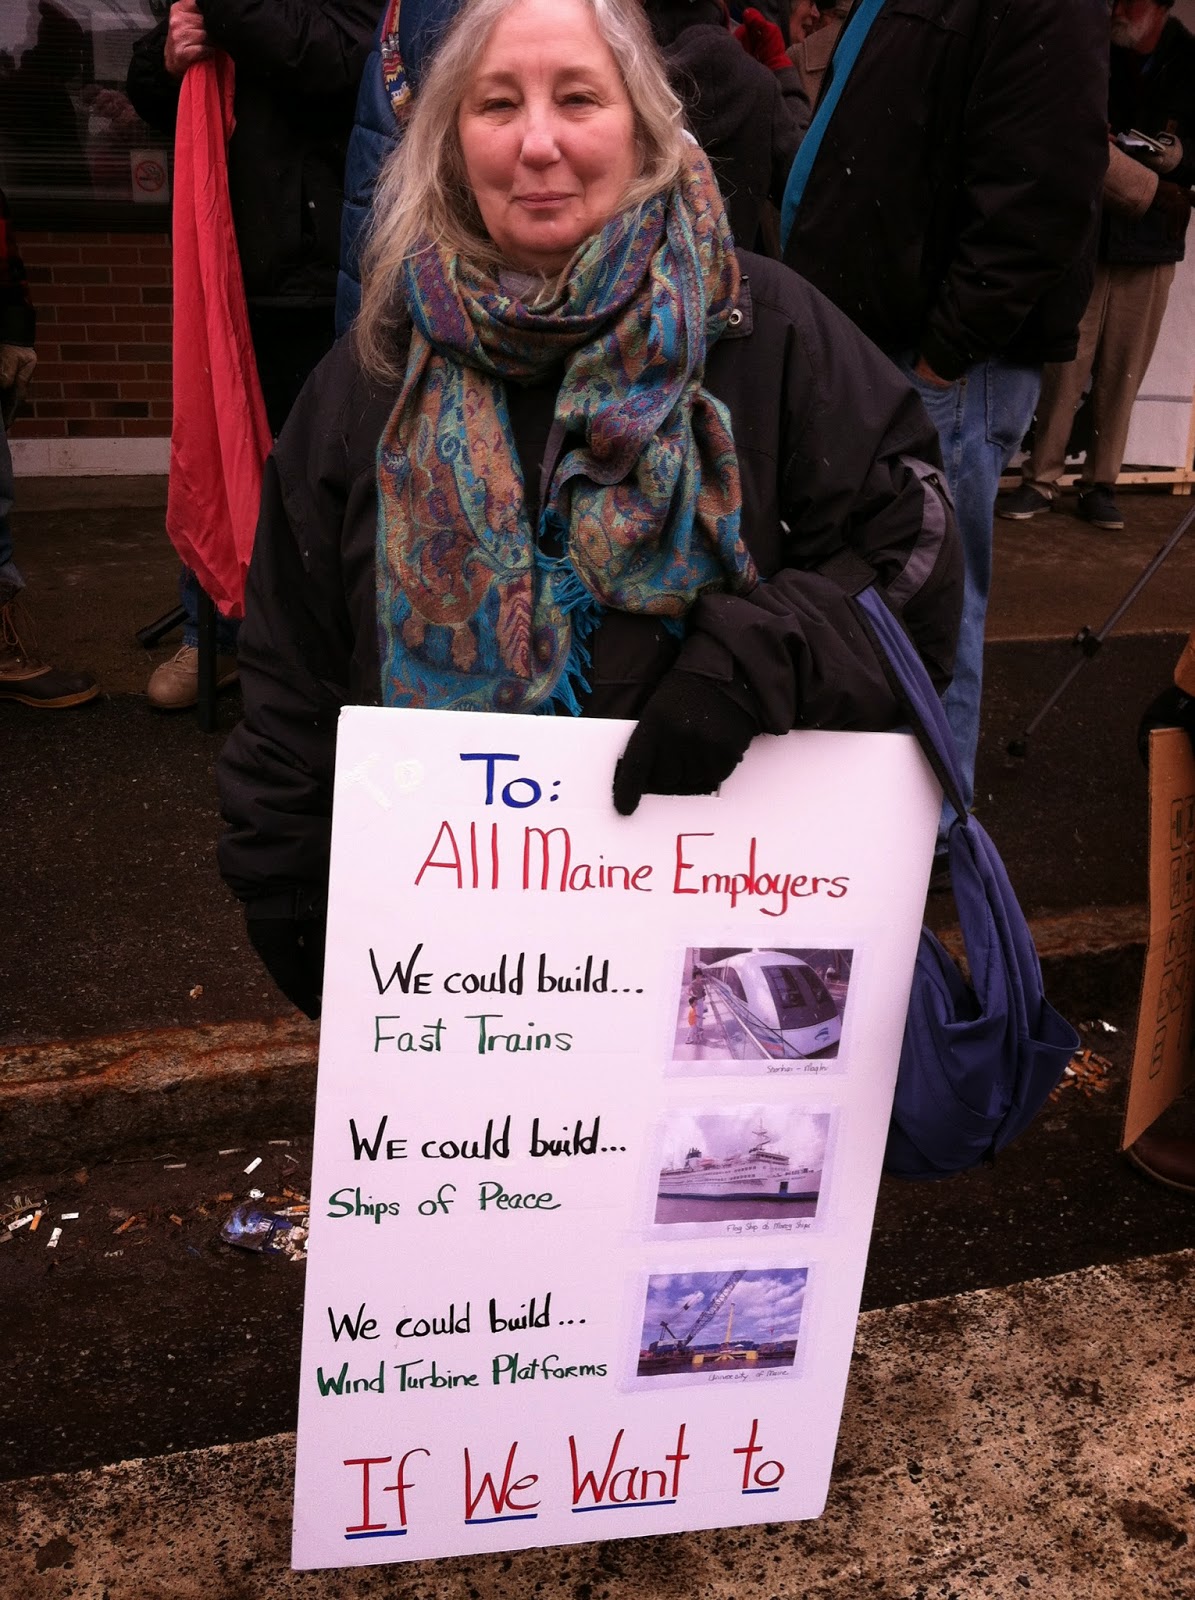 To:
All Maine Employers
We could build...
Fast Trains
We could build...
Ships of Peace
We could build...
Wind Turbine Platforms
University of Maine
If We Want to